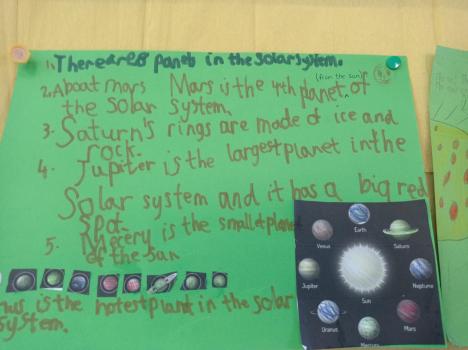 1. There are 8 panets in the solar system.
(from the sun)
2. About mars Mars is the 4th planet of
the solar system.
3. Saturn's rings are made of ice and
rock.
4. Jupiter is the largest planet in the
Solar system and it has a big red
spot.
5. Mercery is the smallest planet
of the sun
nus is the hotest plant in the solar
system.
Earth
Venus
Saturn
Jupiter
Sun
Neptune
Uranus
Mars
Mercury